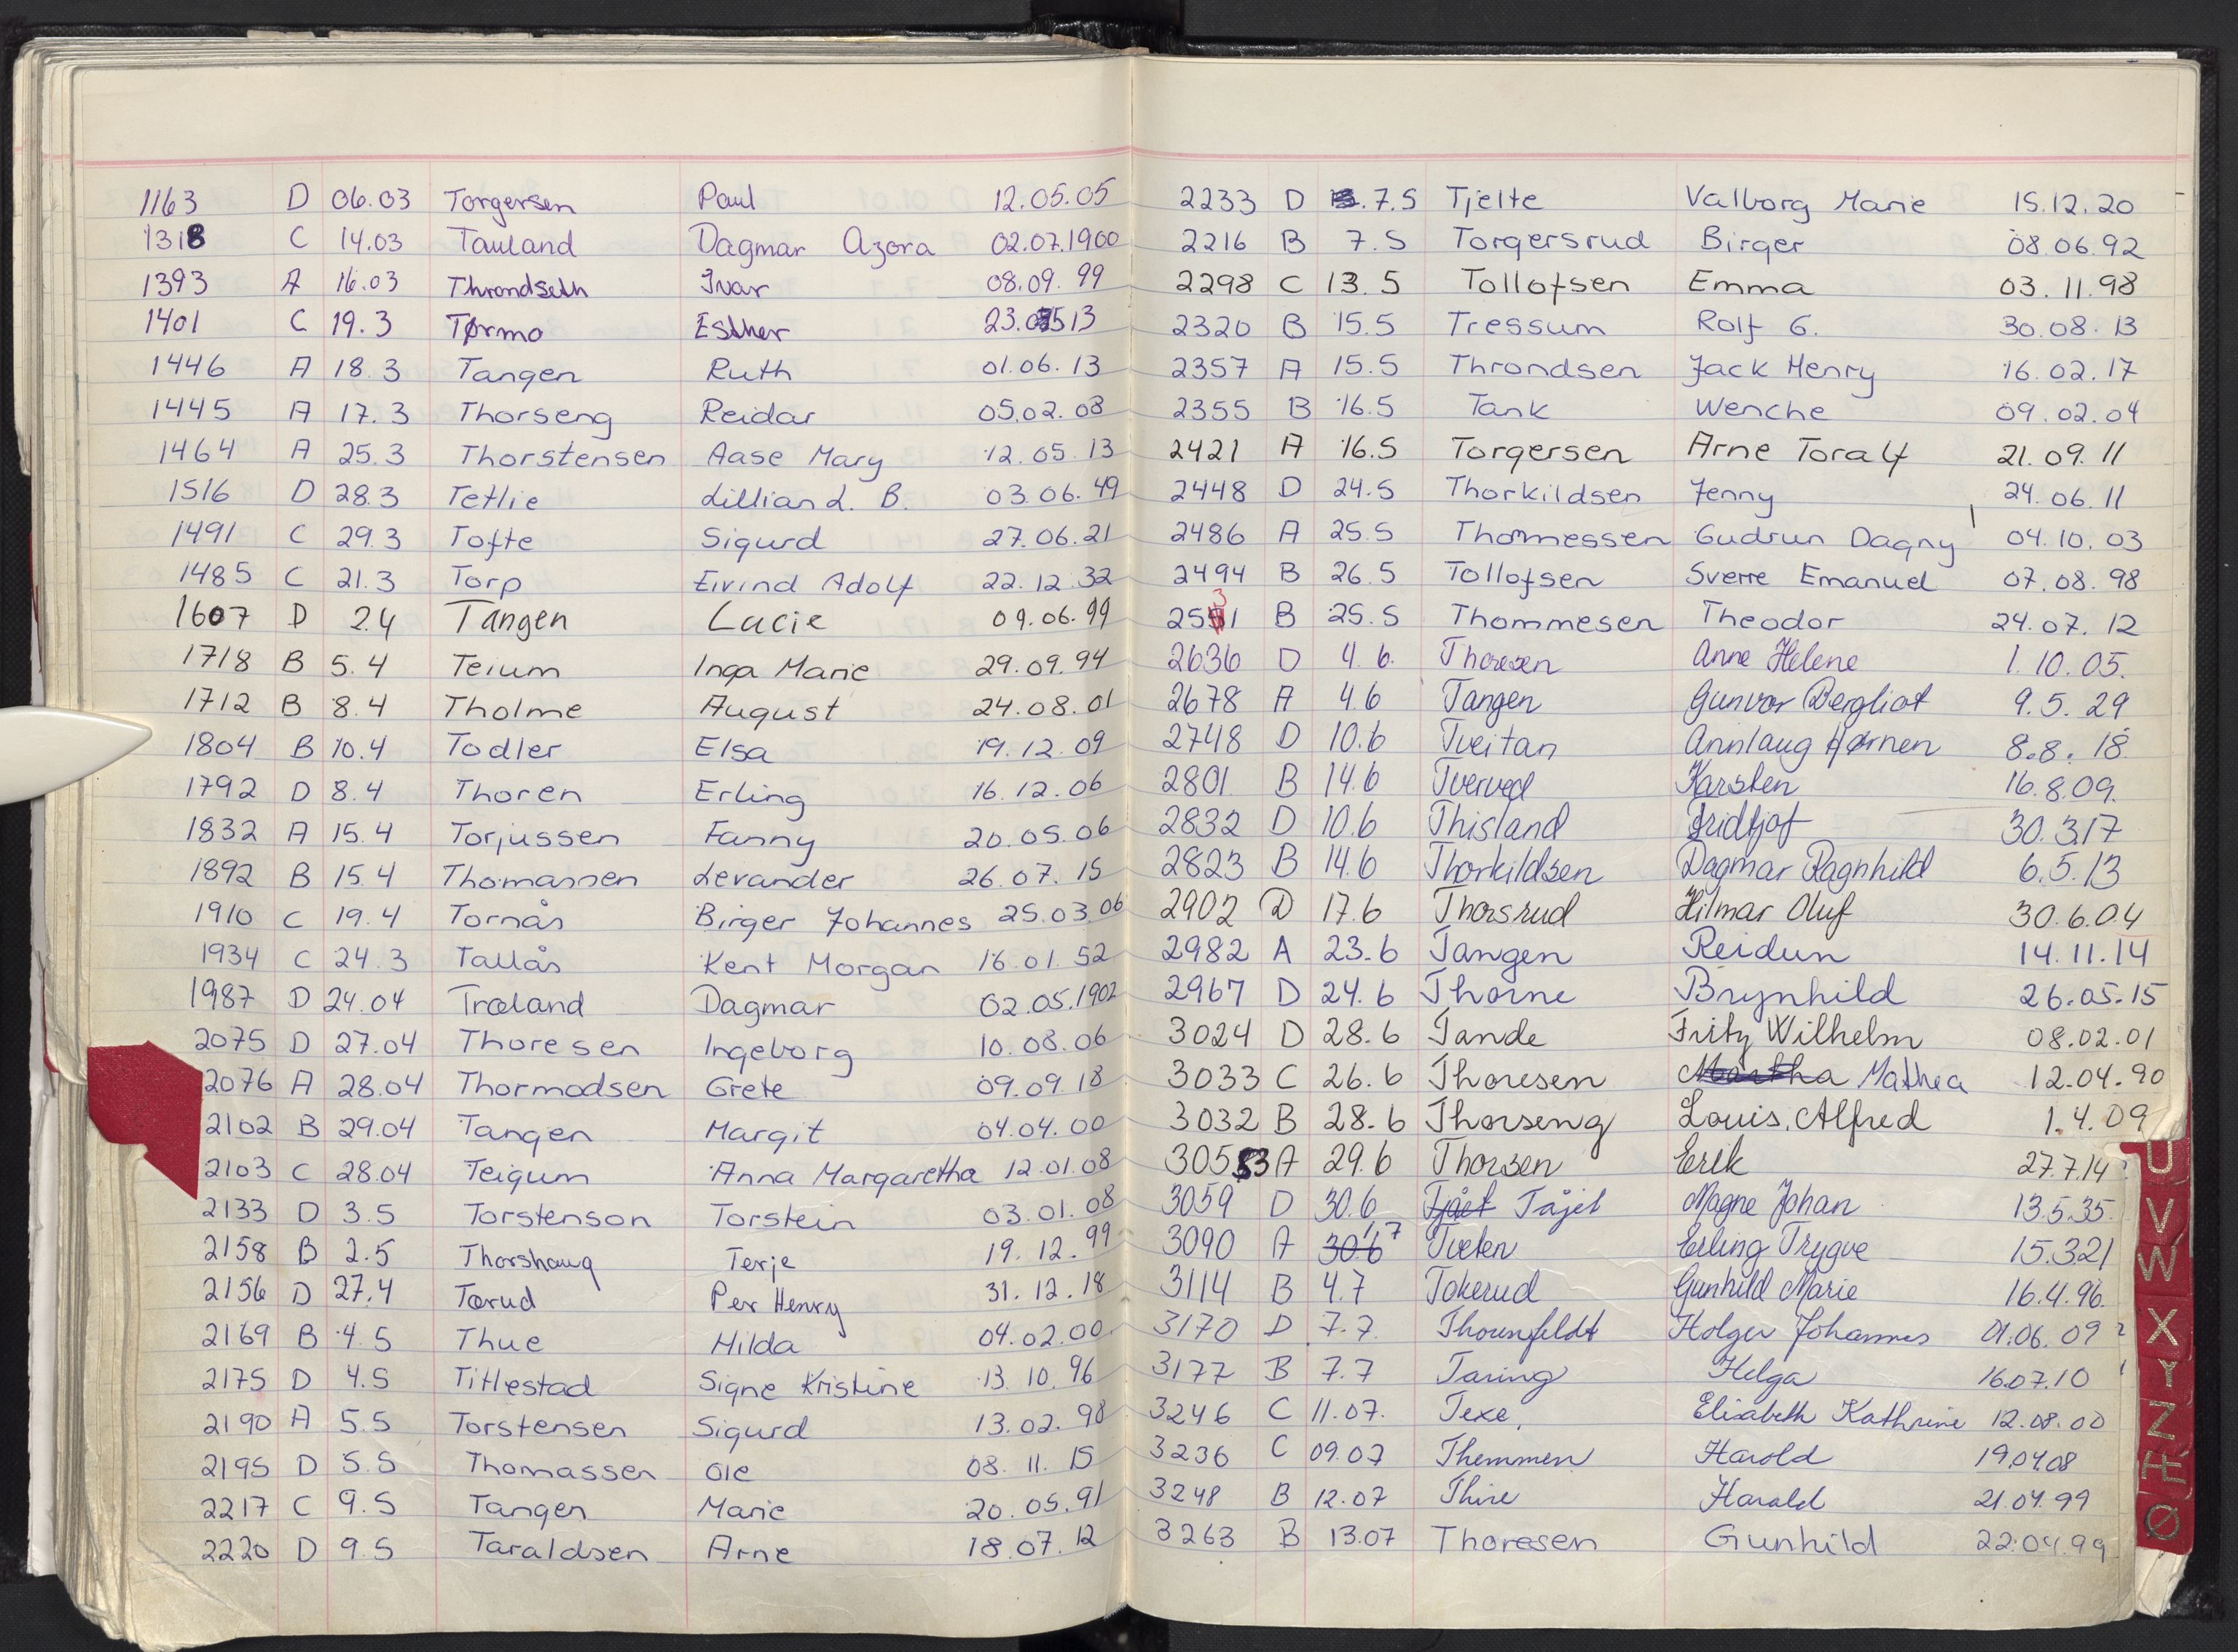 1163 D 06.03 Torgersen Paul 12.05.05
1318 C 14.03 Tauland Dagmar Azora 02.07.1900
1393 A 16.03 Throndseth Ivar 08.09.99
1401 C 19.3 Tørmo Esther 23. 13
1446 A 18.3 Tangen Ruth 01.06.13
1445 A 17.3 Thorseng Reidar 05.02.08
1464 A 25.3 Thorstensen Aase Mary 12.05.13
1516 D 28.3 Tetlie Lillian L. B. 03.06.49
1491 C 29.3 Tofte Sigurd 27.06.21
1485 C 21.3 Torp Eivind Adolf 22.12.32
1607 D 2.4 Tangen Lucie 09.06.99
1718 B 5.4 Teium Inga Marie 29.09.94
1712 B 8.4 Tholme August 24.08.01
1804 B 10.4 Todler Elsa 19.12.09
1792 D 8.4 Thoren Erling 16.12.06
1832 A 15.4 Torjussen Fanny 20.05.06
1892 B 15.4 Thomassen Levander 26.07.15
1910 C 19.4 Tornås Birger Johannes 25.03.06
1934 C 24.3 Tallås Kent Morgan 16.01.52
1987 D 24.04 Træland Dagmar 02.05.1902
2075 D 27.04 Thoresen Ingeborg 10.08.06
2076 A 28.04 Thormodsen Grete 09.09.18
2102 B 29.04 Tangen Margit 04.04.00
2103 C 28.04 Teigum Anna Margaretha 12.01.08
2133 D 3.5 Torstenson Torstein 03.01.08
2158 B 2.5 Thorshaug Terje 19.12.99
2156 D 27.4 Torud Per Henry 31.12.18
2169 B 4.5 Thue Hilda 04.02.00
2175 D 4.5 Titlestad Signe Kristine 13.10.96
2190 A 5.5 Torstensen Sigurd 13.02.98
2195 D 5.5 Thomassen Ole 08.11.15
2217 C 9.5 Tangen Marie 20.05.91
2220 D 9.5 Taraldsen Arne 18.07.12
2233 D 7.5 Tjelte Valborg Marie 15.12.20
2216 B 7.5 Torgersrud Birger 08.06.92
2298 C 13.5 Tollofsen Emma 03.11.98
2320 B 15.5 Tressum Rolf G. 30.08.13
2357 A 15.5 Throndsen Jack Henry 16.02.17
2355 B 16.5 Tank Wenche 09.02.04
2421 A 16.5 Torgersen Arne Toralf 21.09.11
2448 D 24.5 Thorkildsen Jenny 24.06.11
2486 A 25.5 Thommessen Gudrun Dagny 04.10.03
2494 B 26.5 Tollofsen Sverre Emanuel 07.08.98
2531 B 25.5 Thommesen Theodor 24.07.12
2636 D 4.6. Thoresen Anne Helene 1.10.05.
2678 A 4.6 Tangen Gunvor Bergliot 9.5.29
2748 D 10.6 Tveitan Annlaug Hørnen 8.8.18
2801 B 14.6 Tverved Karsten 16.8.09.
2832 D 10.6 Thisland Fridtjof 30.3.17
2823 B 14.6 Thorkildsen Dagmar Ragnhild 6.5.13
2902 D 17.6 Thorsrud Hilmar Oluf 30.6.04
2982 A 23.6 Tangen Reidun 14.11.14
2967 D 24.6 Thorne Brynhild 26.05.15
3024 D 28.6 Tande Fritz Wilhelm 08.02.01
3033 C 26.6 Thoresen Martha Mathea 12.04.90
3032 B 28.6 Thorseng Louis, Alfred 1.4.09
3053 A 29.6 Thorsen Erik 27.7.14
3059 D 30.6 Tjået Tåjet Magne Johan 13.5.35.
3090 A 30.6 1.7 Tveten Erling Trygve 15.3.21
3114 B 4.7 Tokerud Gunhild Marie 16.4.96.
3170 D 7.7. Thounfeldt Holger Johannes 01.06.09
3177 B 7.7 Taring Helga 16.07.10
3246 C 11.07. Texe Elisabeth Kathrine 12.08.00
3236 C 09.07 Themmen Harold 19.04.08
3248 B 12.07 Thire Harald 21.04.99
3263 B 13.07 Thoresen Gunhild 22.04.99
U
V
W
X
Y
Z
Æ
Ø